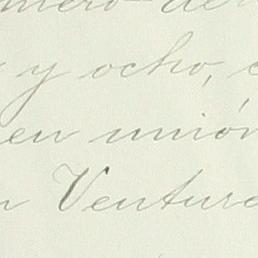 y ocho,
en unión
Ventura